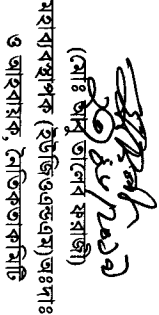 (মোঃ আবু তালেব ফরাজী)
মহাব্যবস্থাপক (ইউজিওএন্ডএম)অঃদাঃ
ও আহবায়ক, নৈতিকতা কমিটি